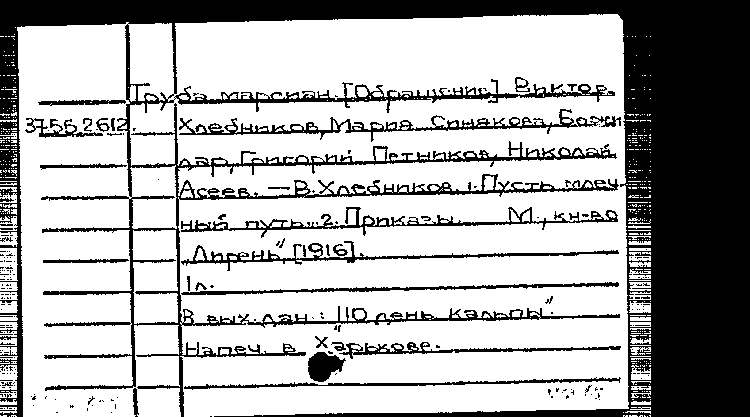 Труба марсиан. [Обращение] Виктор.
37.55.2612. Хлебников, Мария Синякова, Божи
дар, Григорий Петников, Николай
Асеев. — В. Хлебников. 1. Пусть млеч-
ный путь.. 2. Приказы. М., кн-во
„Лирень", [1916].
1 л.
В вых. дан.: "10 день кальпы".
Напеч. в Харькове.